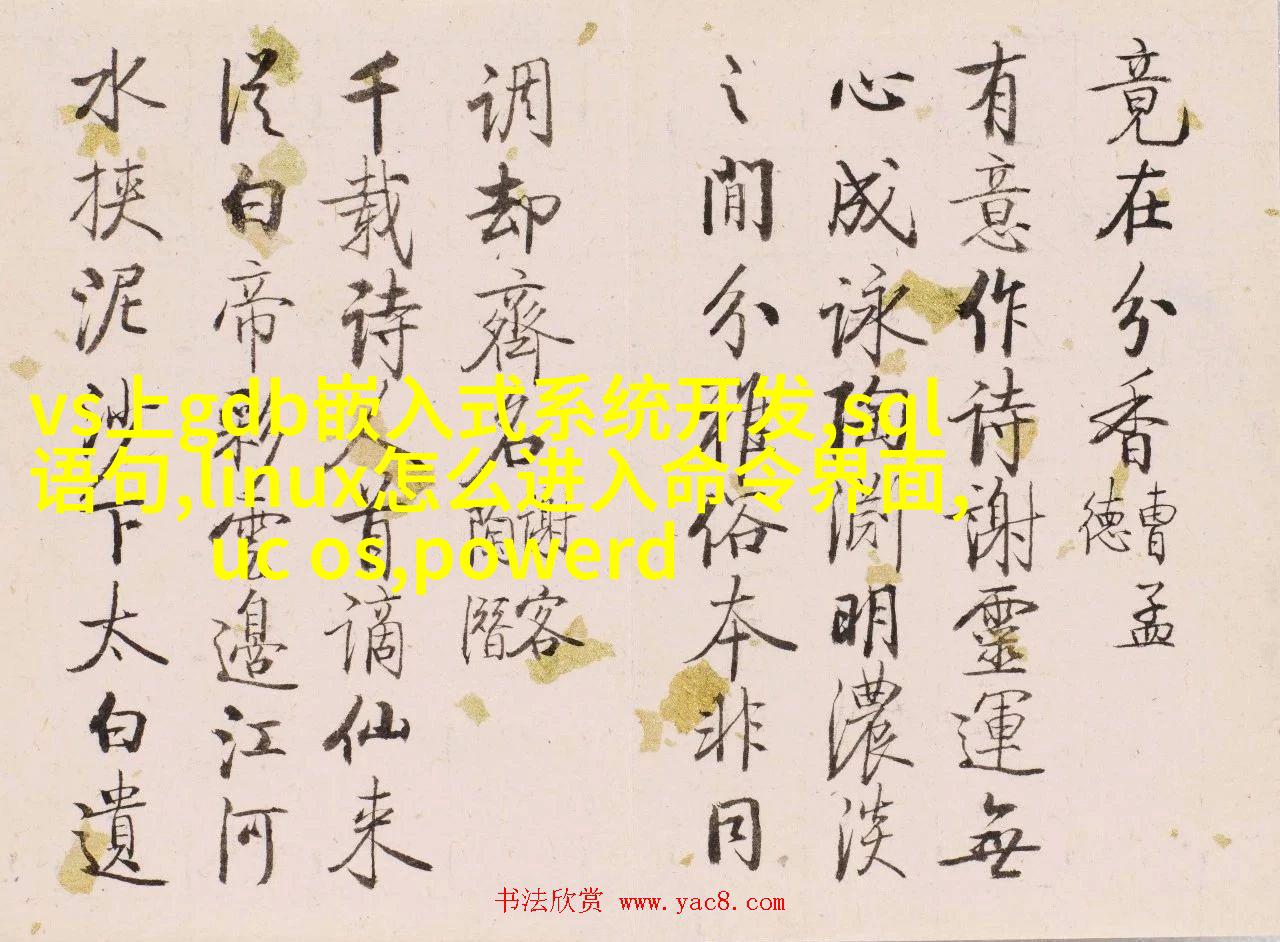 竟在分香曹孟
德
有意作诗谢靈運無
心成詠陶淵明濃淡
之間分雅俗本非同
调却齊名谢客
陶潛
千载诗人首谪仙来
從白帝彩雲邊江河
水挾泥沙下太白遺
vs上gdb嵌入式系统开发,sql
语句,linux怎么进入命令界面,
uc os,powerd
书法欣赏 www.yac8.com